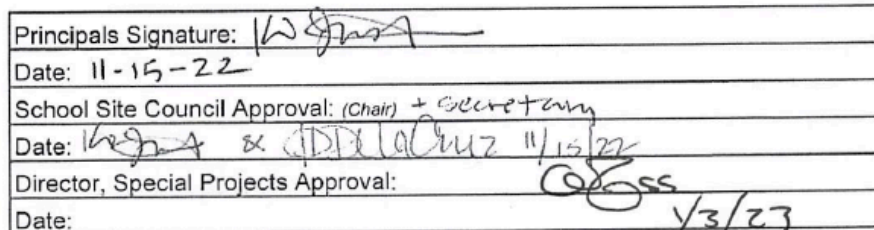 Principals Signature:
Date: 11-15-22
School Site Council Approval: (Chair) + Secretary
Date: & DDelaCruz 11/15/22
Director, Special Projects Approval:
Date: 1/3/23